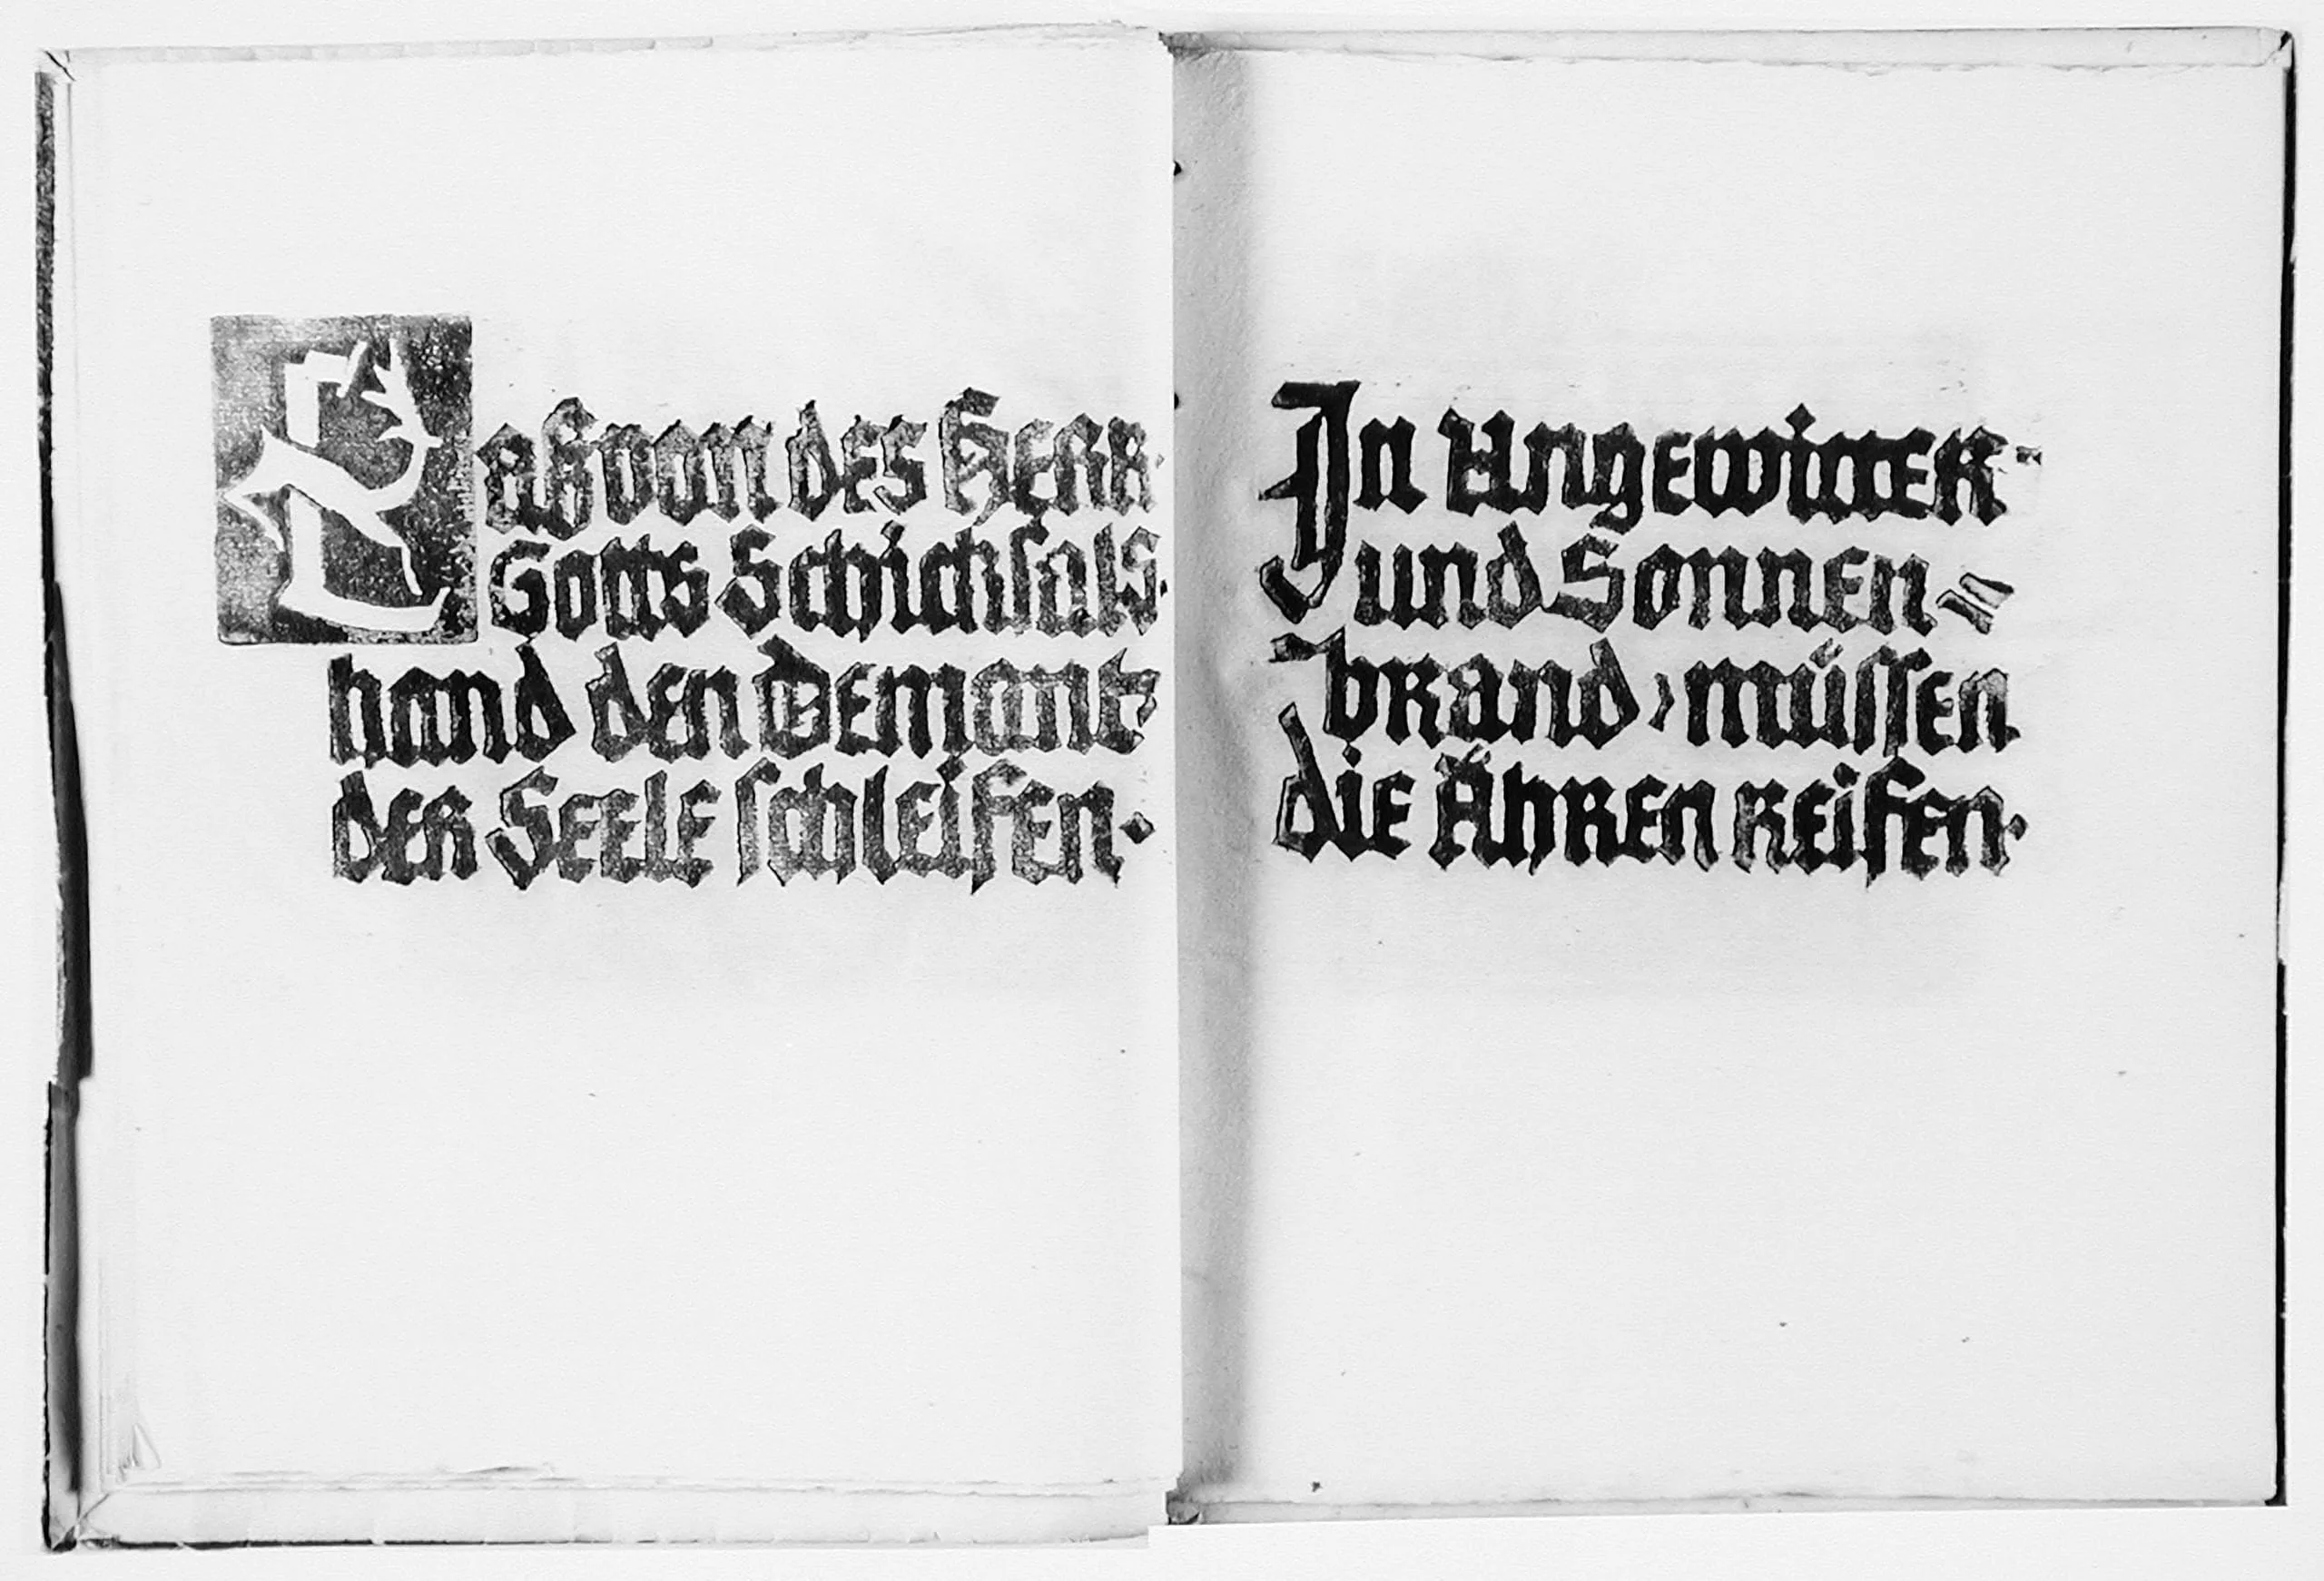 Laß von des Herr-
Gotts Schicksals-
hand den Demant
der Seele schleifen.
In Ungewitter-
und Sonnen=
brand, müssen
die Ähren reifen.